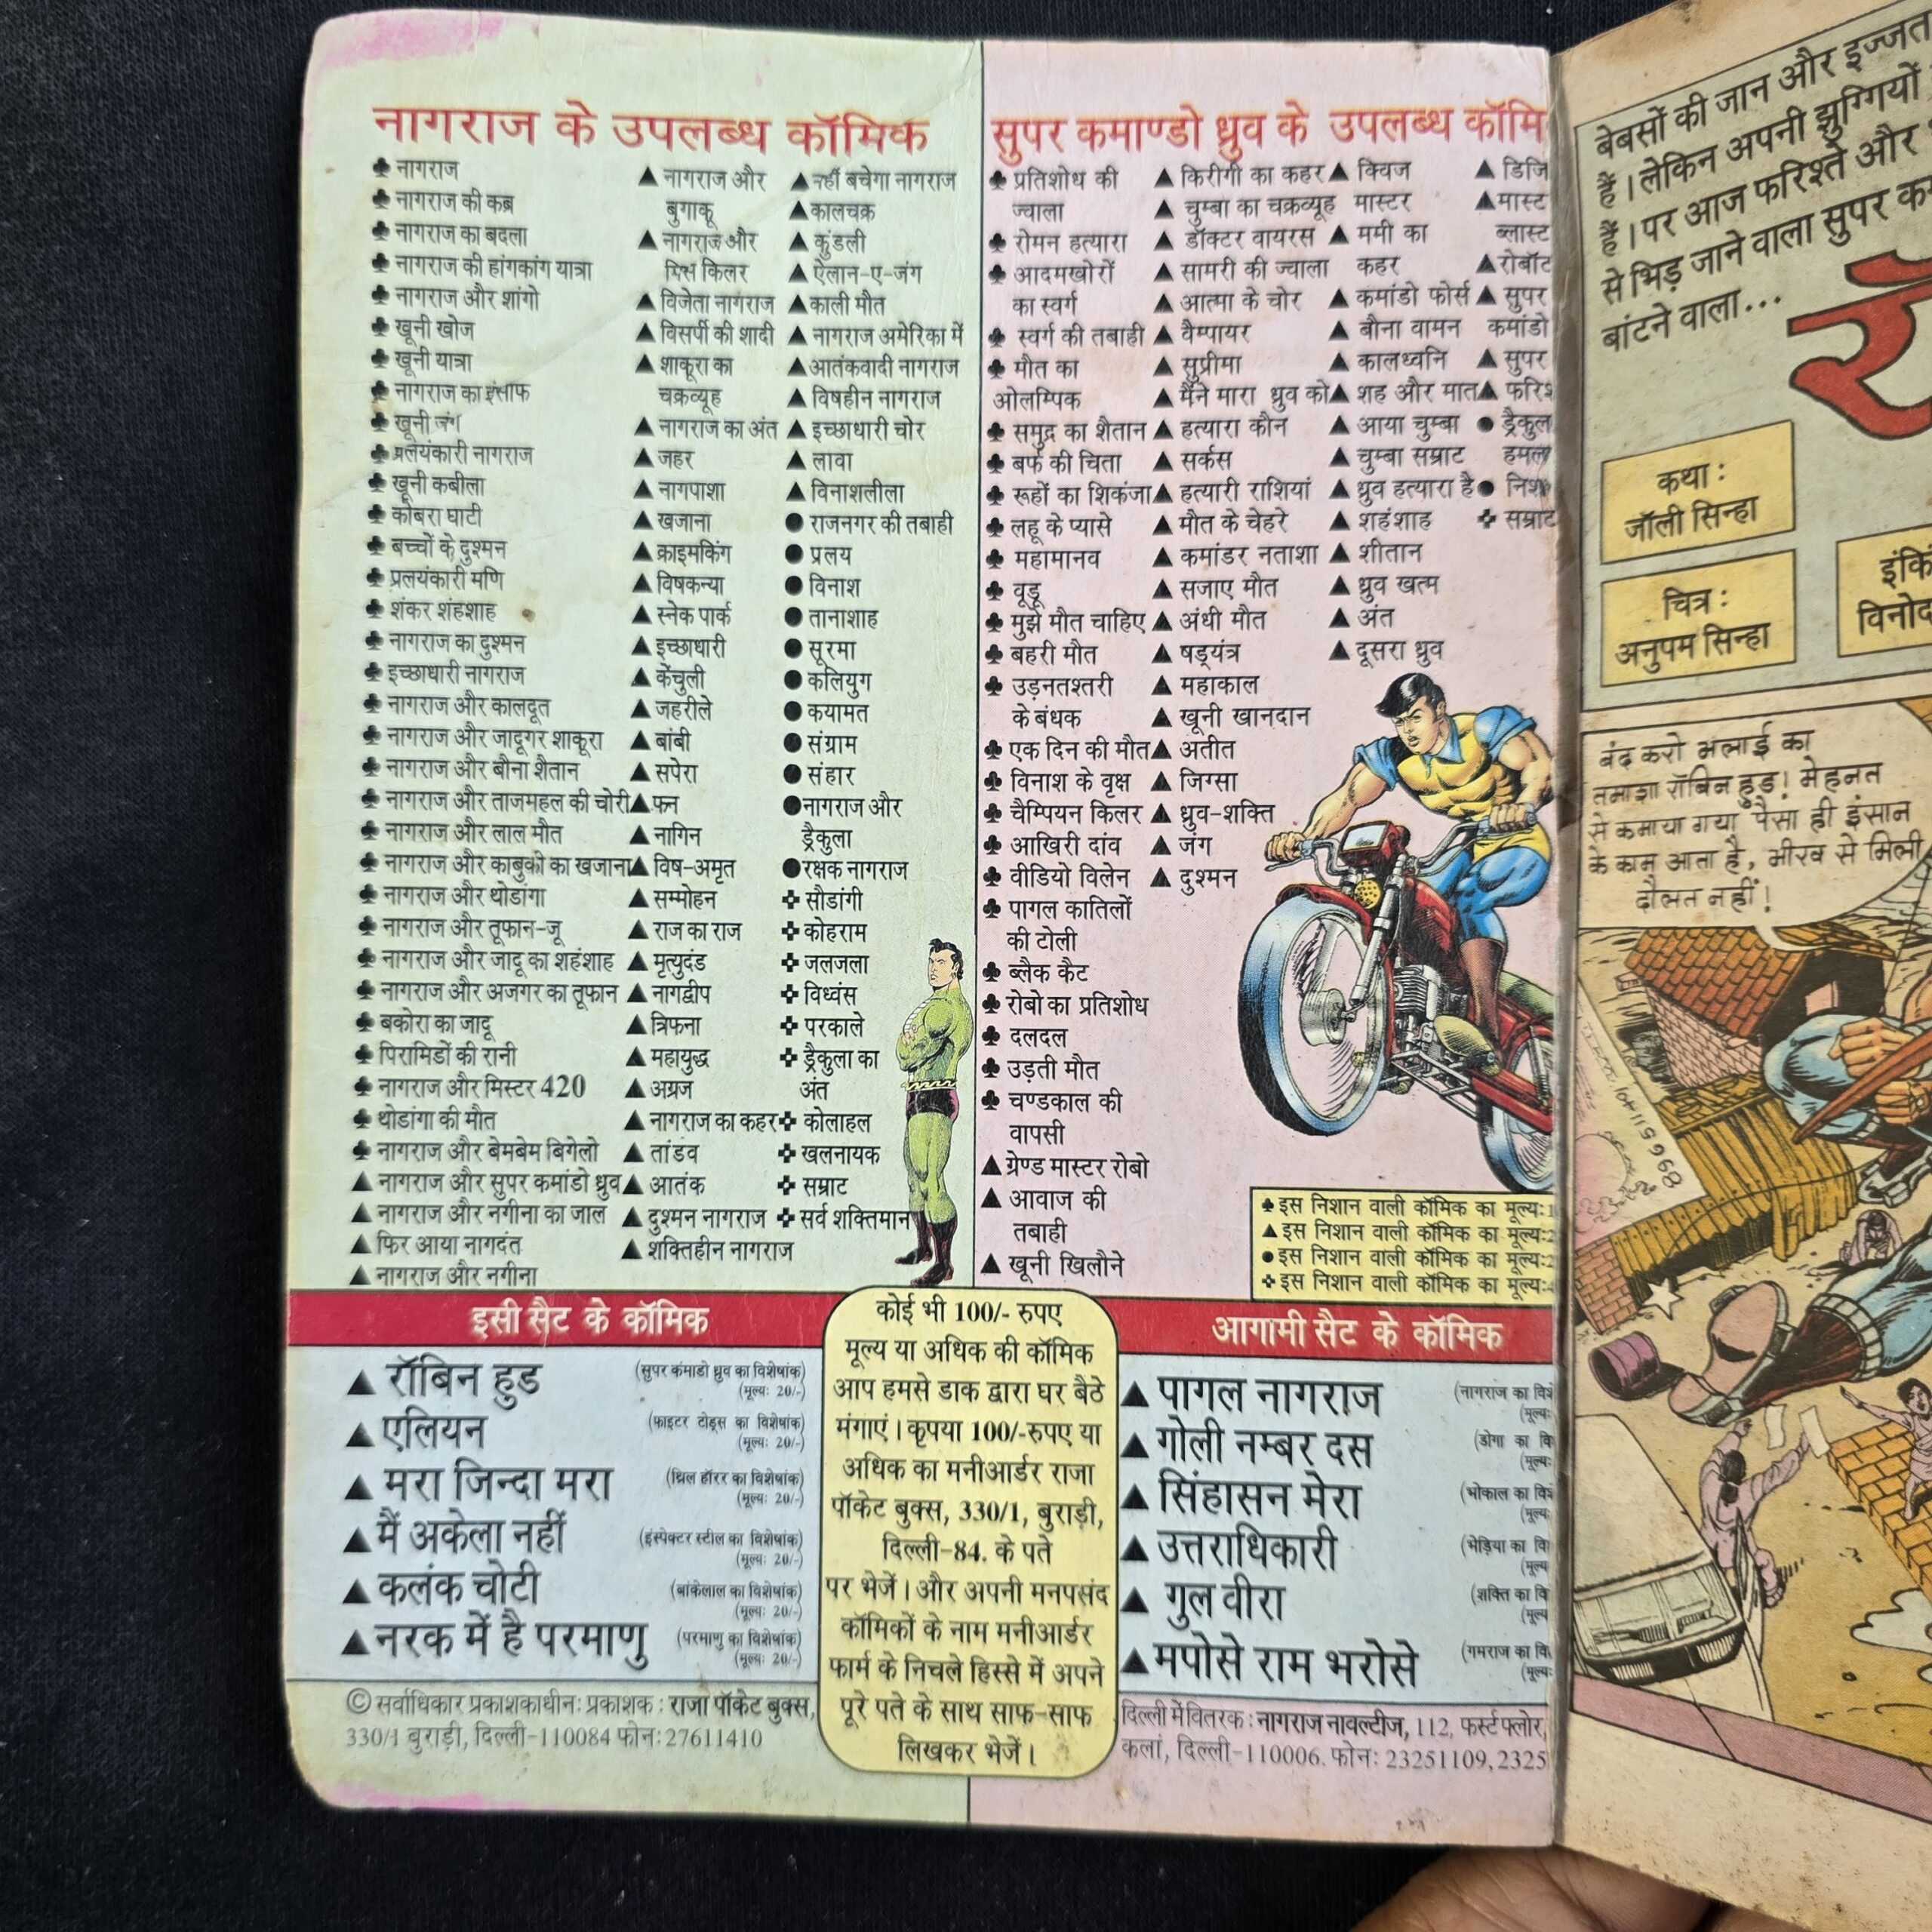 नागराज के उपलब्ध कॉमिक
♣ नागराज
♣ नागराज की कब्र
♣ नागराज का बदला
♣ नागराज की हांगकांग यात्रा
♣ नागराज और शांगो
♣ खूनी खोज
♣ खूनी यात्रा
♣ नागराज का इंसाफ
♣ खूनी जंग
♣ प्रलयंकारी नागराज
♣ खूनी कबीला
♣ कोबरा घाटी
♣ बच्चों के दुश्मन
♣ प्रलयंकारी मणि
♣ शंकर शंहशाह
♣ नागराज का दुश्मन
♣ इच्छाधारी नागराज
♣ नागराज और कालदूत
♣ नागराज और जादूगर शाकूरा
♣ नागराज और बौना शैतान
♣ नागराज और ताजमहल की चोरी
♣ नागराज और लाल मौत
♣ नागराज और काबुकी का खजाना
♣ नागराज और थोडांगा
♣ नागराज और तूफान-जू
♣ नागराज और जादू का शहंशाह
♣ नागराज और अजगर का तूफान
♣ बकोरा का जादू
♣ पिरामिडों की रानी
♣ नागराज और मिस्टर 420
♣ थोडांगा की मौत
♣ नागराज और बेमबेम बिगेलो
▲ नागराज और सुपर कमांडो ध्रुव
▲ नागराज और नगीना का जाल
▲ फिर आया नागदंत
▲ नागराज और नगीना
▲ नागराज और
बुगाकू
▲ नागराज और
मिस किलर
▲ विजेता नागराज
▲ विसर्पी की शादी
▲ शाकूरा का
चक्रव्यूह
▲ नागराज का अंत
▲ जहर
▲ नागपाशा
▲ खजाना
▲ क्राइमकिंग
▲ विषकन्या
▲ स्नेक पार्क
▲ इच्छाधारी
▲ केंचुली
▲ जहरीले
▲ बांबी
▲ सपेरा
▲ फन
▲ नागिन
▲ विष-अमृत
▲ सम्मोहन
▲ राज का राज
▲ मृत्युदंड
▲ नागद्वीप
▲ त्रिफना
▲ महायुद्ध
▲ अग्रज
▲ नागराज का कहर
▲ तांडव
▲ आतंक
▲ दुश्मन नागराज
▲ शक्तिहीन नागराज
▲ नहीं बचेगा नागराज
▲ कालचक्र
▲ कुंडली
▲ ऐलान-ए-जंग
▲ काली मौत
▲ नागराज अमेरिका में
▲ आतंकवादी नागराज
▲ विषहीन नागराज
▲ इच्छाधारी चोर
▲ लावा
▲ विनाशलीला
● राजनगर की तबाही
● प्रलय
● विनाश
● तानाशाह
● सूरमा
● कलियुग
● कयामत
● संग्राम
● संहार
● नागराज और
ड्रैकुला
● रक्षक नागराज
✚ सौडांगी
✚ कोहराम
✚ जलजला
✚ विध्वंस
✚ परकाले
✚ ड्रैकुला का
अंत
✚ कोलाहल
✚ खलनायक
✚ सम्राट
✚ सर्व शक्तिमान
सुपर कमाण्डो ध्रुव के उपलब्ध कॉमि
♣ प्रतिशोध की
ज्वाला
♣ रोमन हत्यारा
♣ आदमखोरों
का स्वर्ग
♣ स्वर्ग की तबाही
♣ मौत का
ओलम्पिक
♣ समुद्र का शैतान
♣ बर्फ की चिता
♣ रूहों का शिकंजा
♣ लहू के प्यासे
♣ महामानव
♣ वूडू
♣ मुझे मौत चाहिए
♣ बहरी मौत
♣ उड़नतश्तरी
के बंधक
♣ एक दिन की मौत
♣ विनाश के वृक्ष
♣ चैम्पियन किलर
♣ आखिरी दांव
♣ वीडियो विलेन
♣ पागल कातिलों
की टोली
♣ ब्लैक कैट
♣ रोबो का प्रतिशोध
♣ दलदल
♣ उड़ती मौत
♣ चण्डकाल की
वापसी
▲ ग्रेण्ड मास्टर रोबो
▲ आवाज की
तबाही
▲ खूनी खिलौने
▲ किरीगी का कहर
▲ चुम्बा का चक्रव्यूह
▲ डॉक्टर वायरस
▲ सामरी की ज्वाला
▲ आत्मा के चोर
▲ वैम्पायर
▲ सुप्रीमा
▲ मैंने मारा ध्रुव को
▲ हत्यारा कौन
▲ सर्कस
▲ हत्यारी राशियां
▲ मौत के चेहरे
▲ कमांडर नताशा
▲ सजाए मौत
▲ अंधी मौत
▲ षड्यंत्र
▲ महाकाल
▲ खूनी खानदान
▲ अतीत
▲ जिग्सा
▲ ध्रुव-शक्ति
▲ जंग
▲ दुश्मन
▲ क्विज
मास्टर
▲ ममी का
कहर
▲ कमांडो फोर्स
▲ बौना वामन
▲ कालध्वनि
▲ शह और मात
▲ आया चुम्बा
▲ चुम्बा सम्राट
▲ ध्रुव हत्यारा है
▲ शहंशाह
▲ शीतान
▲ ध्रुव खत्म
▲ अंत
▲ दूसरा ध्रुव
▲ डिजि
▲ मास्ट
ब्लास्ट
▲ रोबॉट
▲ सुपर
कमांडो
▲ सुपर
▲ फरिश
● ड्रैकुल
हमल
● निश
✚ सम्राट
♣ इस निशान वाली कॉमिक का मूल्य:
▲ इस निशान वाली कॉमिक का मूल्य:
● इस निशान वाली कॉमिक का मूल्य:
✚ इस निशान वाली कॉमिक का मूल्य:
इसी सैट के कॉमिक
▲ रॉबिन हुड (सुपर कंमाडो ध्रुव का विशेषांक)
(मूल्य: 20/-)
▲ एलियन (फाइटर टोड्स का विशेषांक)
(मूल्य: 20/-)
▲ मरा जिन्दा मरा (थ्रिल हॉरर का विशेषांक)
(मूल्य: 20/-)
▲ मैं अकेला नहीं (इंस्पेक्टर स्टील का विशेषांक)
(मूल्य: 20/-)
▲ कलंक चोटी (बांकेलाल का विशेषांक)
(मूल्य: 20/-)
▲ नरक में है परमाणु (परमाणु का विशेषांक)
(मूल्य: 20/-)
कोई भी 100/- रुपए
मूल्य या अधिक की कॉमिक
आप हमसे डाक द्वारा घर बैठे
मंगाएं। कृपया 100/-रुपए या
अधिक का मनीआर्डर राजा
पॉकेट बुक्स, 330/1, बुराड़ी,
दिल्ली-84. के पते
पर भेजें। और अपनी मनपसंद
कॉमिकों के नाम मनीआर्डर
फार्म के निचले हिस्से में अपने
पूरे पते के साथ साफ-साफ
लिखकर भेजें।
आगामी सैट के कॉमिक
▲ पागल नागराज (नागराज का विशे
(मूल्य:
▲ गोली नम्बर दस (डोगा का वि
(मूल्य:
▲ सिंहासन मेरा (भोकाल का विशे
(मूल्य
▲ उत्तराधिकारी (भेड़िया का वि
(मूल्य
▲ गुल वीरा (शक्ति का वि
(मूल्य
▲ मपोसे राम भरोसे (गमराज का वि
(मूल्य
© सर्वाधिकार प्रकाशकाधीन: प्रकाशक : राजा पॉकेट बुक्स,
330/1 बुराड़ी, दिल्ली-110084 फोन: 27611410
दिल्ली में वितरक : नागराज नावल्टीज, 112, फर्स्ट फ्लोर,
कलां, दिल्ली-110006. फोन: 23251109, 2325
बेबसों की जान और इज्जत
हैं। लेकिन अपनी झुग्गियों
हैं। पर आज फरिश्ते और
से भिड़ जाने वाला सुपर क
बांटने वाला...
रॉ
कथा :
जॉली सिन्हा
चित्र :
अनुपम सिन्हा
इंकि
विनोद
बंद करो भलाई का
तमाशा रॉबिन हुड! मेहनत
से कमाया गया पैसा ही इंसान
के काम आता है, भीख से मिली
दौलत नहीं!